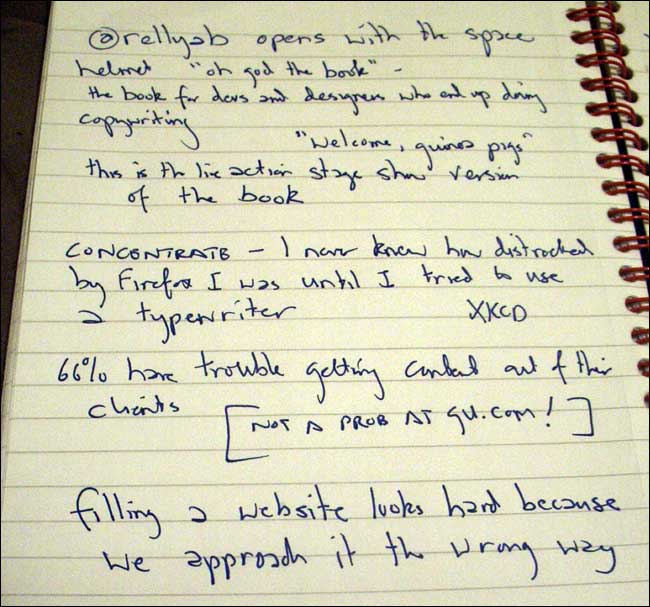 @rellyab opens with the space
helmet "oh god the book" -
the book for devs and designers who end up doing
copywriting
"Welcome, guinea pigs"
this is th live action stage show version
of the book
CONCENTRATE - I never knew how distracted
by Firefox I was until I tried to use
a typewriter XKCD
66% have trouble getting content out of their
clients
[NOT A PROB AT gu.com!]
filling a website looks hard because
we approach it the wrong way